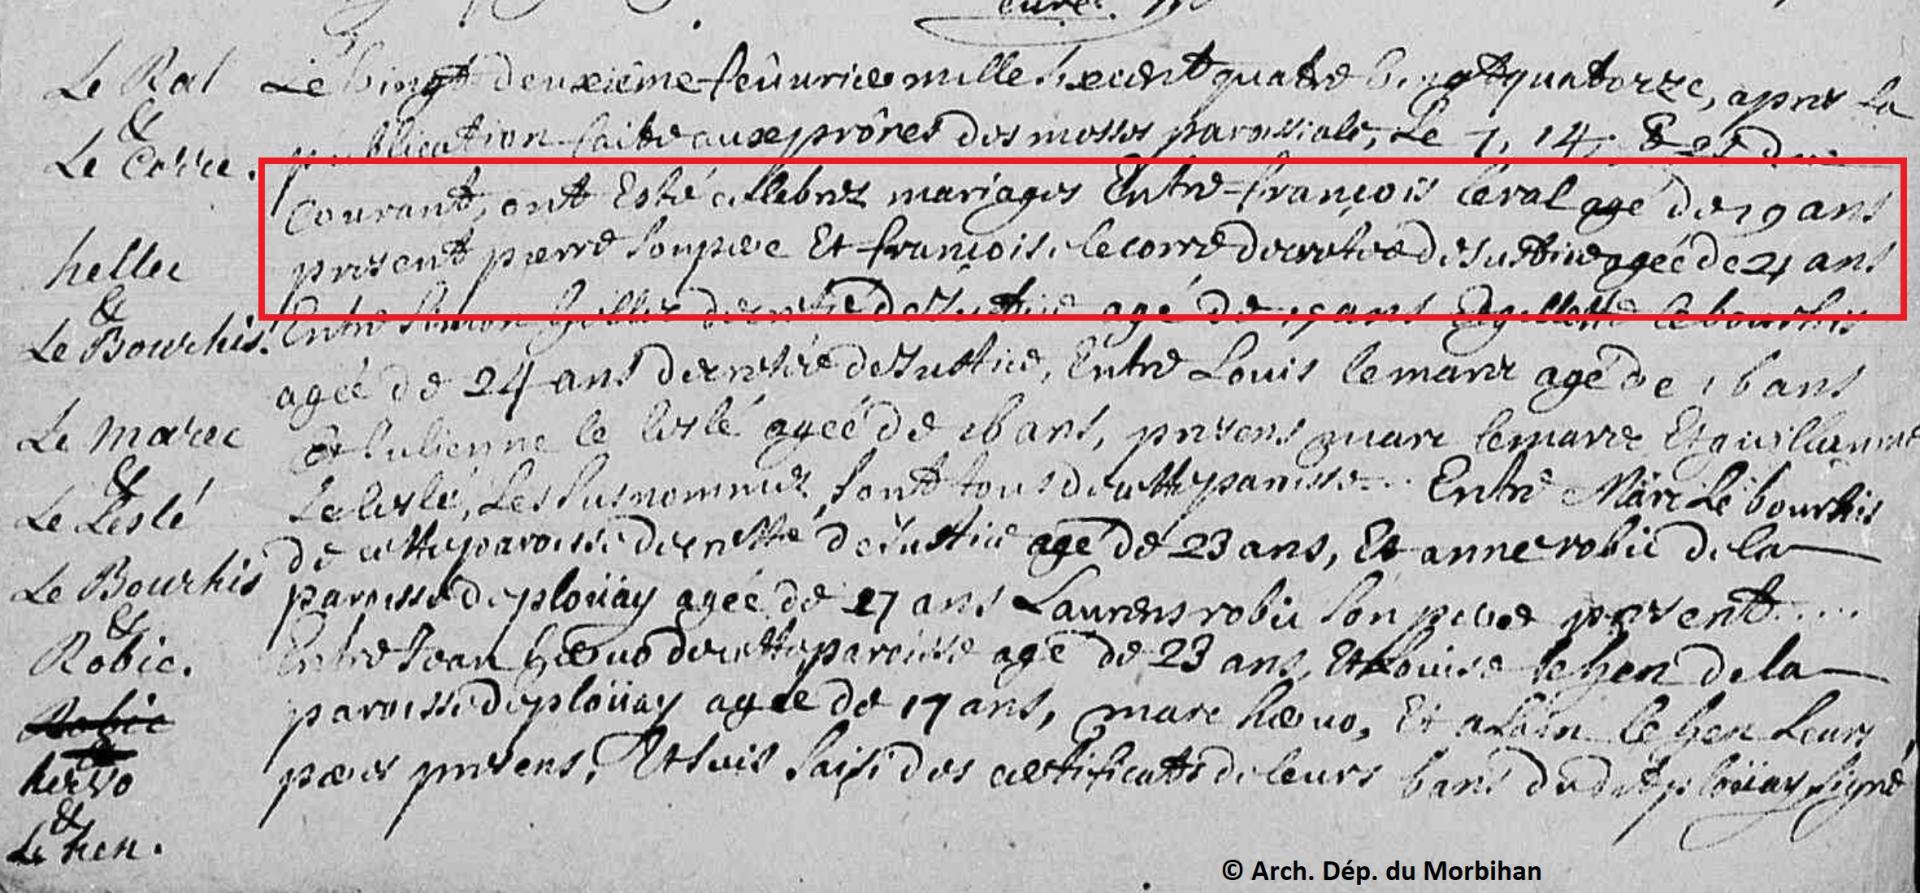 curé.
Le Ral
&
Le Corre.
hellec
&
Le Bourhis.
Le marec
&
Le Leslé
Le Bourhis
&
Robic.
Robic
&
hervo
&
Le hen.
Le vingt deuxiême feûvrier mille sixcent quatre vingt quatorze, apres la
publication faitte aux prônes des messes paroissiale, Le 7, 14, & 21 du
Courant, ont Esté cellebrez mariages Entre françois le ral agé de 19 ans
present pierre son pere Et françoise le corre decretée de Justice agéé de 21 ans
Entre Simon hellec decreté de Justice agé de 19 ans Et gillette le bourhis
agéé de 24 ans decretée de Justice, Entre Louis le marec agé de 16 ans
Et Julienne le leslé agéé de 16 ans, presens marc le marec Et guillaume
Le leslé, Les susnommez sont tous de cette paroisse.. Entre Marc Le bourhis
de cette paroisse decretté de Justice agé de 23 ans, Et anne robic de la
paroisse de ploüay agéé de 27 ans Laurens robic son pere present....
Entre Jean heruo de cette paroisse agé de 23 ans, Et Louise le hen de la
paroisse de ploüay agéé de 17 ans, marc heruo, Et alain le hen Leurs
peres presens, Et suis saisi des certificatts de leurs bans dudit ploüay signé
© Arch. Dép. du Morbihan